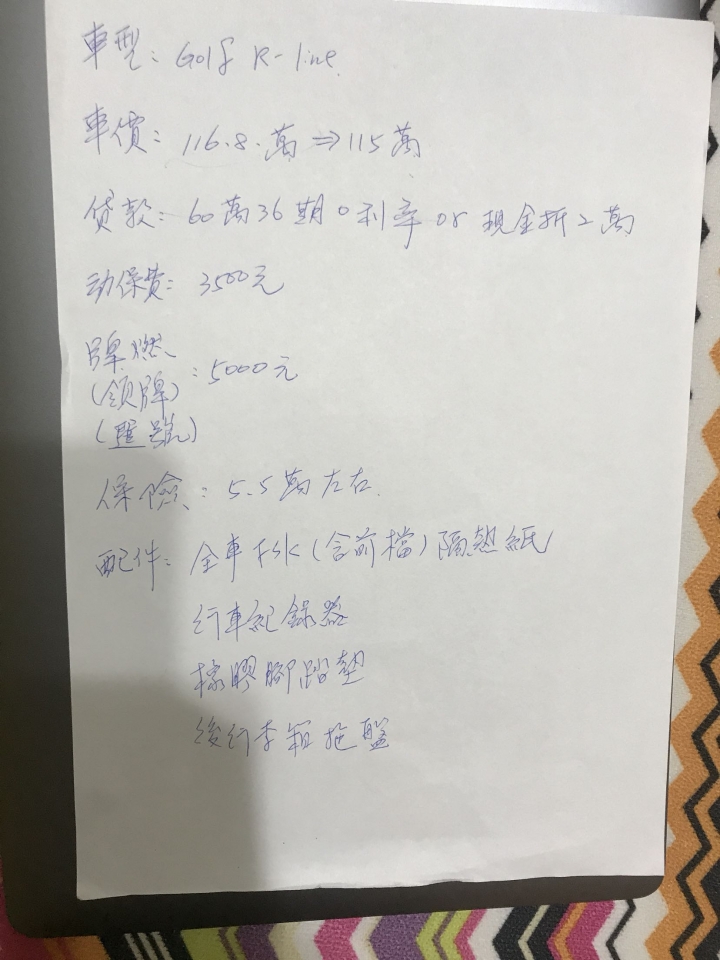 車型：Golf R-line.
車價：116.8.萬⇒115萬
貸款：60萬36期0利率 or 現金折2萬
动保費：3500元
牌燃
(領牌)：5000元
(選號)
保險：5.5萬左右.
配件：全車FSK(含前檔)隔熱紙
行車紀錄器
橡膠腳踏墊
後行李箱拖盤